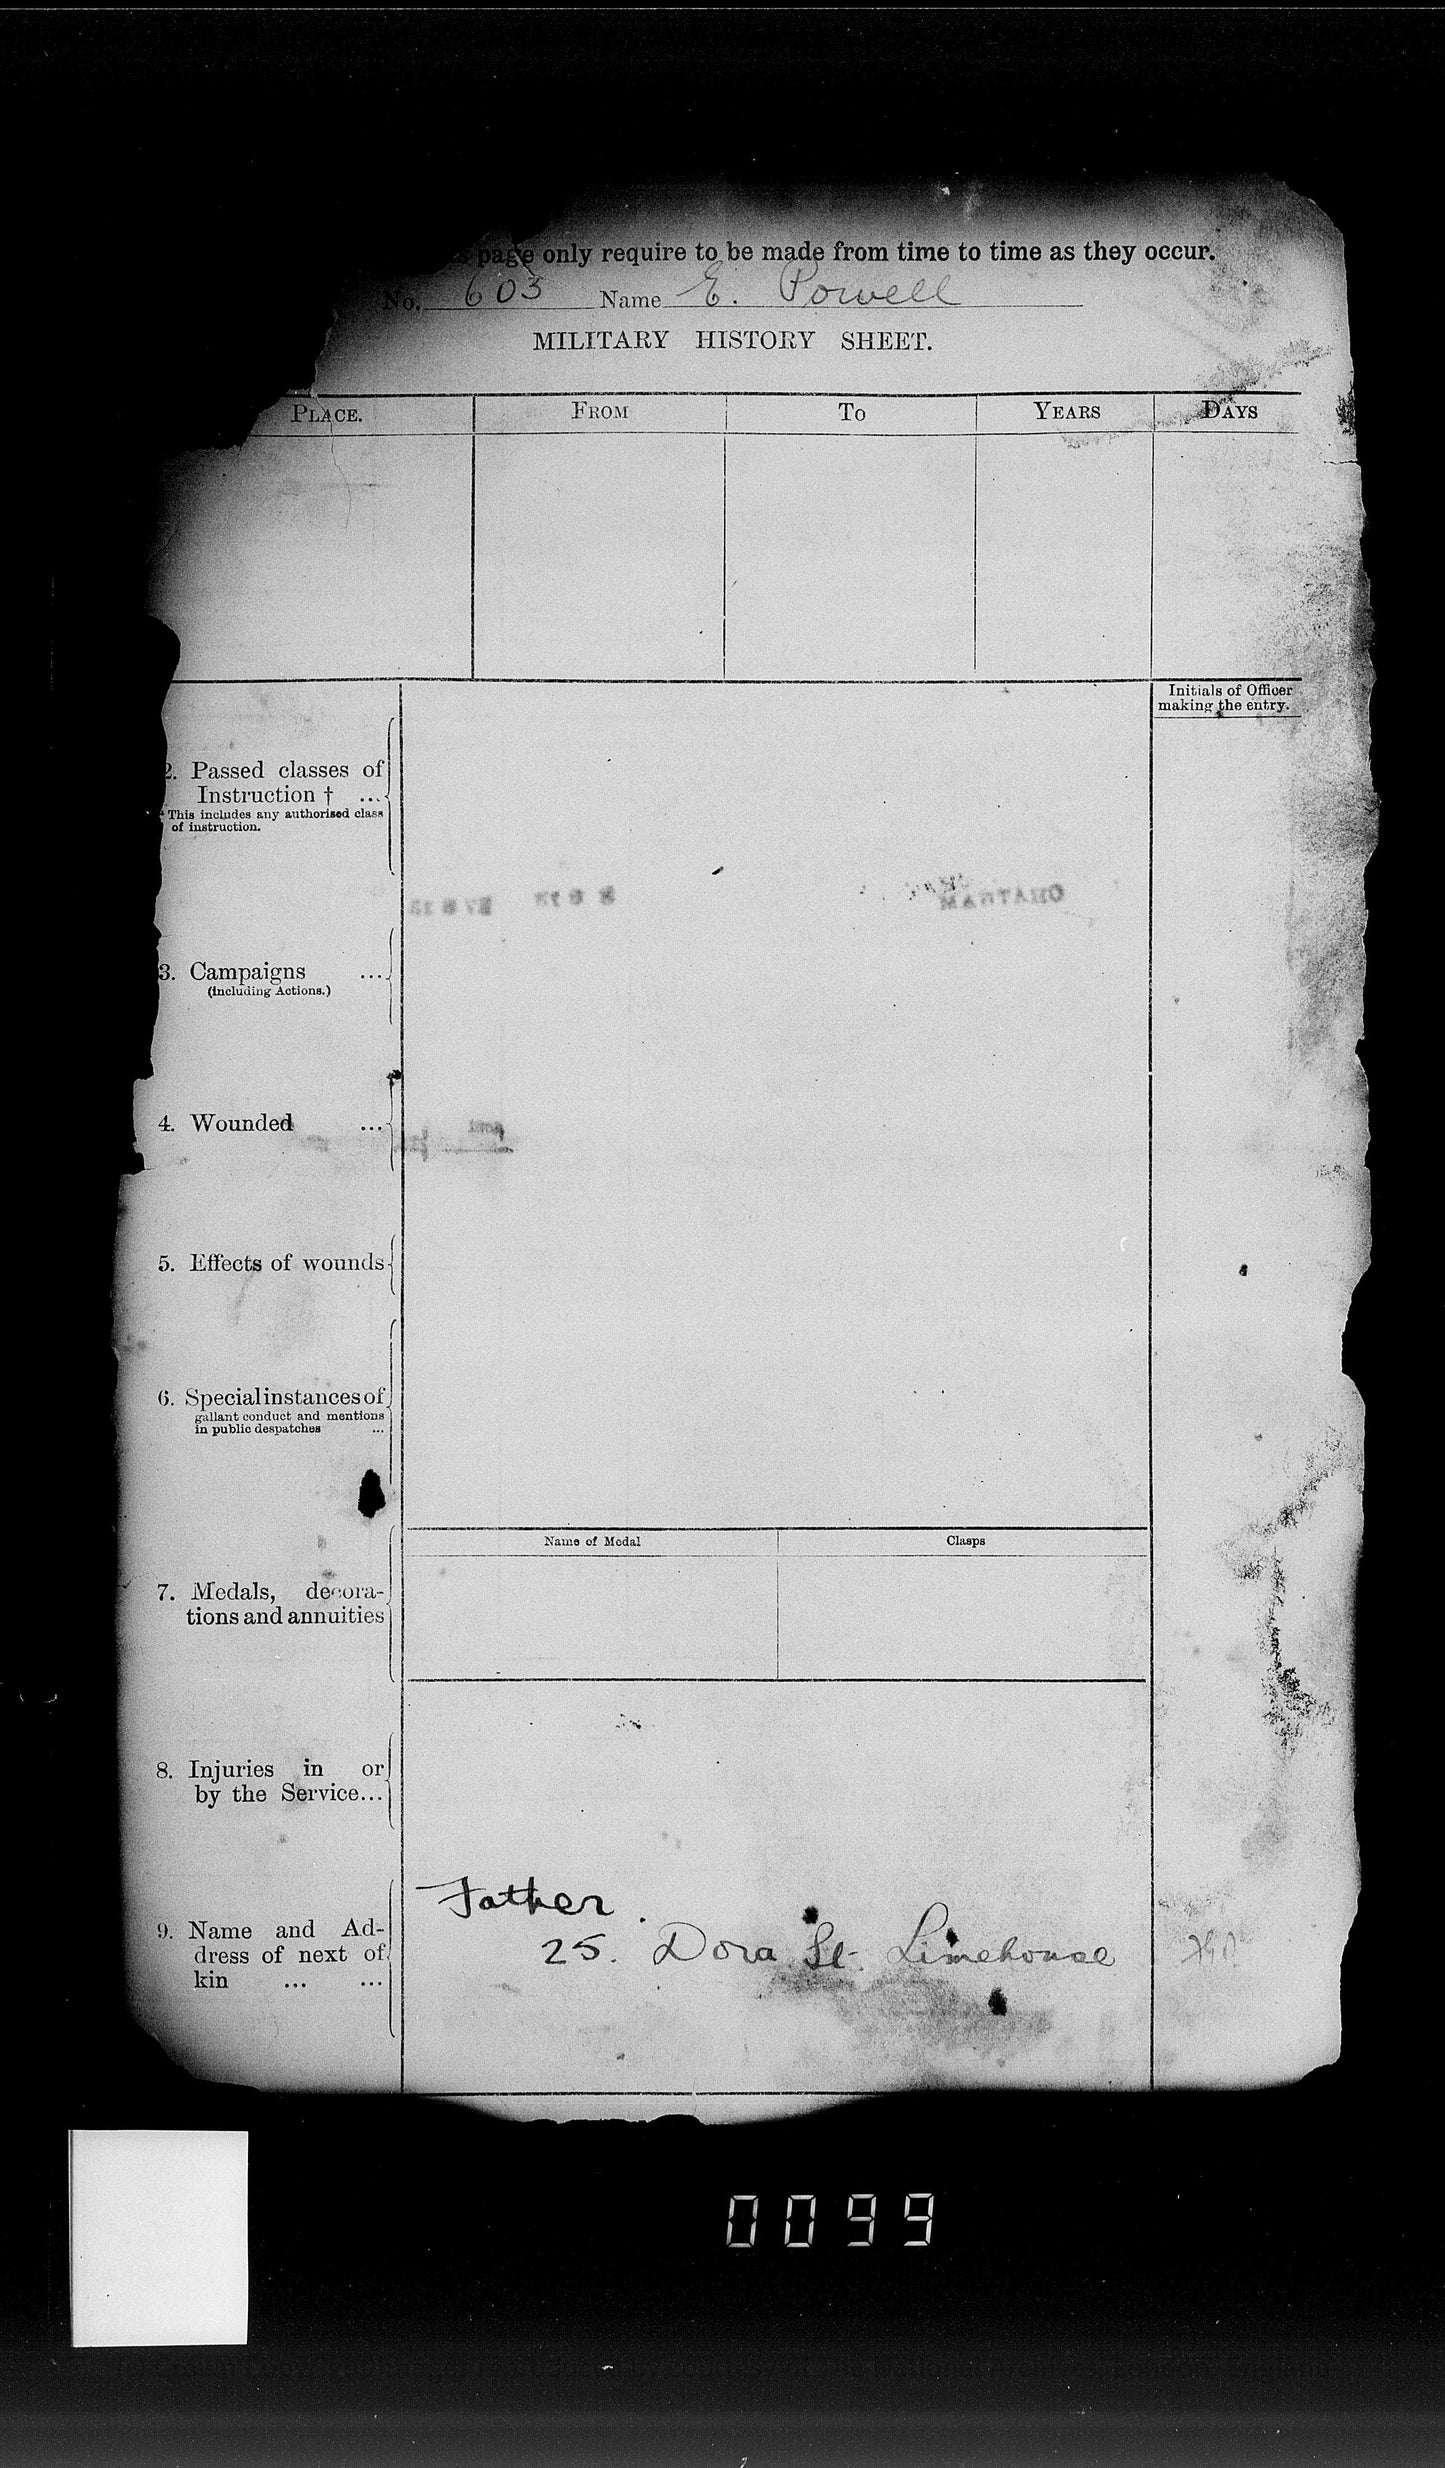 page only require to be made from time to time as they occur.
No. 603 Name E. Powell
MILITARY HISTORY SHEET.
PLACE. FROM TO YEARS DAYS
Initials of Officer
making the entry.
2. Passed classes of
Instruction † ...
* This includes any authorised class
of instruction.
3. Campaigns ...
(including Actions.)
4. Wounded ...
5. Effects of wounds
6. Special instances of
gallant conduct and mentions
in public despatches ...
Name of Medal Clasps
7. Medals, decora-
tions and annuities
8. Injuries in or
by the Service...
Father.
9. Name and Ad-
dress of next of
kin ... ...
25. Dora St. Limehouse
0099